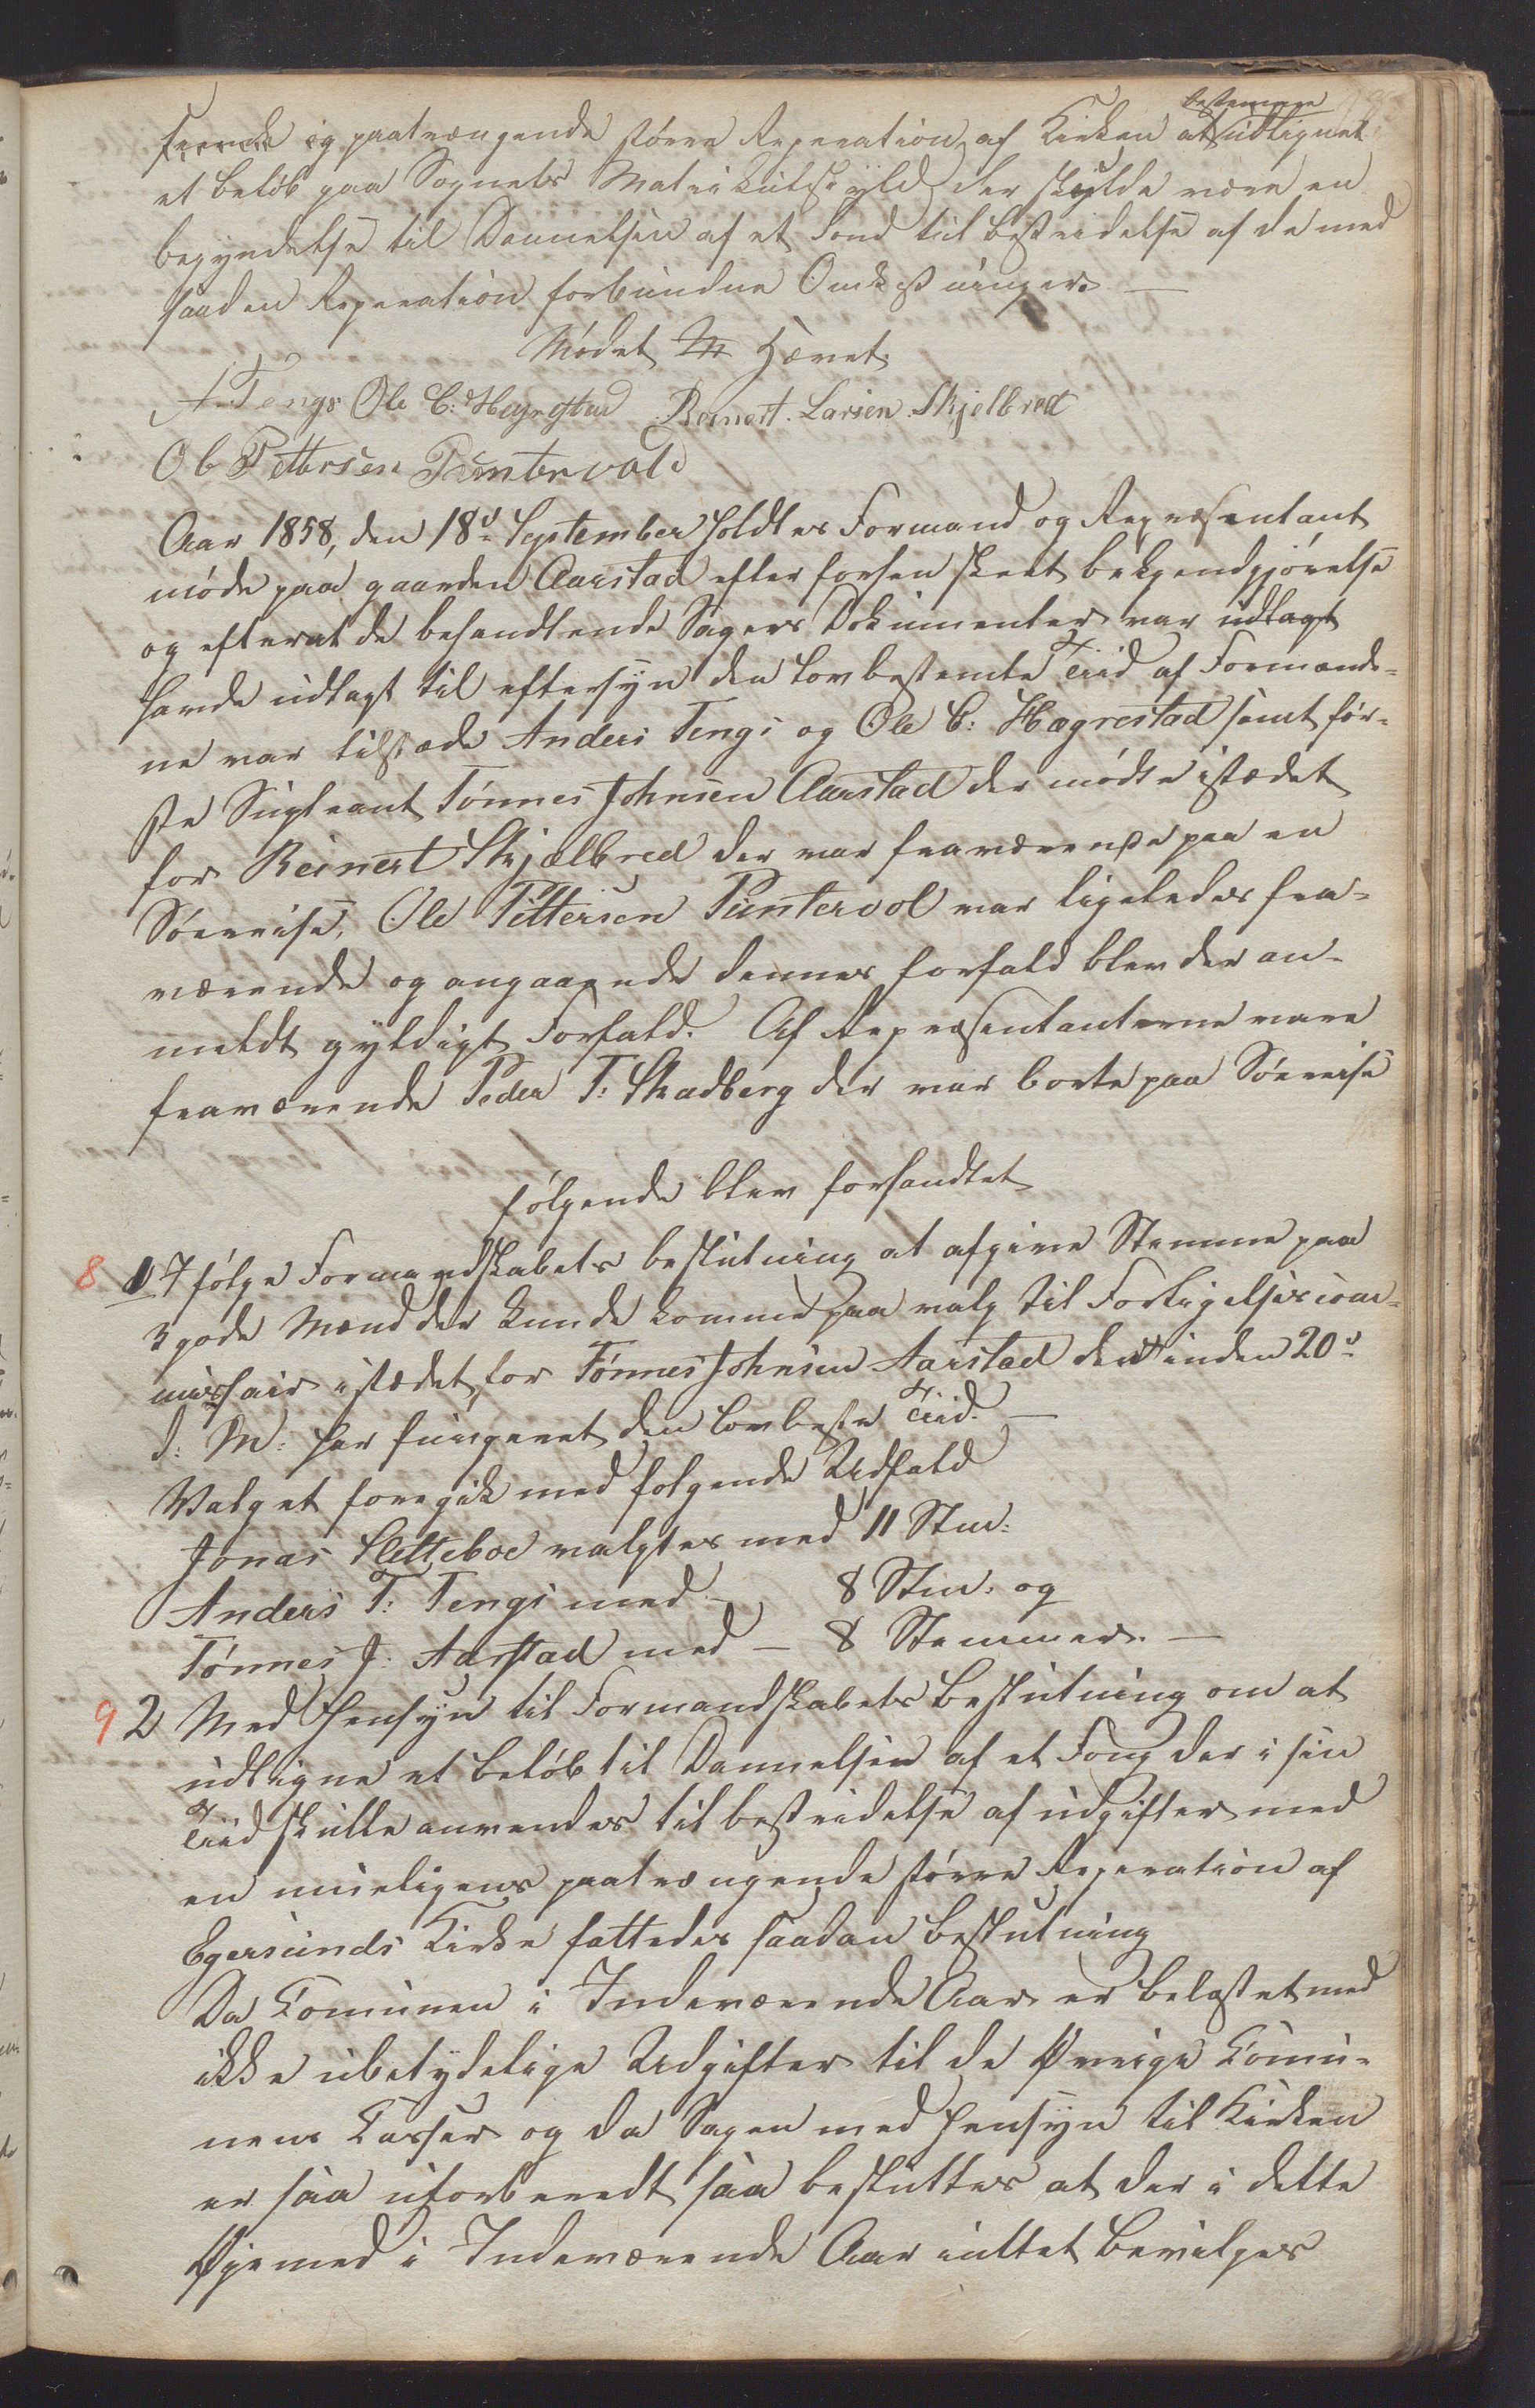 bestemme
og paatrængende større Reperation af Kirken at udlignet
et beløb paa Sognets Matrikulskyld der skulde være en
begyndelse til Dannelsen af et Fond til bestridelse af de med
saadan Reperation forbundne Omkostninger. —
Mødet Hævet.
A. Tengs Ole C: Hægrestad Reinert. Larsen. Skjelbred
Ole Pettersen Puntervold
Aar 1858, den 18d September holdtes Formand og Repræsentant
møde paa gaarden Aarstad efter forhen skeet bekjendgjørelse
og efterat de behandlende Sagers Dokumenter var udlagt
havde udlagt til eftersyn den lovbestemte Tiid af Formænde-
ne var tilstæde Anders Tengs og Ole C: Hægrestad samt før-
ste Supleant Tønnes Johnsen Aarstad der mødte istædet
for Reinert Skjælbred der var fraværende paa en
Søereise, Ole Pettersen Puntervol var ligeledes fra-
værende og angaaende dennes forfald blev der an-
meldt gyldigt Forfald. Af Repræsentanterne vare
fraværende Peder T: Skadberg der var borte paa Søereise
følgende blev forhandlet
8 1 Ifølge Formandskabets beslutning at afgive Stemme paa
3 gode Mænd der kunde komme paa valg til Forligelsescom-
missair istædet for Tønnes Johnsen Aarstad der inden 20d
d: M: har fungeret den lovbeste Tiid. —
Valget foregik med følgende Udfald
Jonas Sletteboe valgtes med 11 Stm:
Anders T: Tengs med — 8 Stm. og
Tønnes J: Aarstad med — 8 Stemmer. —
9 2 Med Hensyn til Formandskabets Beslutning om at
udligne et beløb til Dannelsen af et Fong der i sin
Tiid skulle anvendes til bestridelse af udgifter med
en mueligens paatrængende større Reperation af
Egersunds Kirke fattedes saadan beslutning
Da Comunen i Indeværende Aar er belastet med
ikke ubetydelige Udgifter til de Øvrige Comu-
nens Casser og da Sagen med Hensyn til Kirken
er saa uforberedt saa besluttes at der i dette
Øjemed i Indeværende Aar intet Bevilges